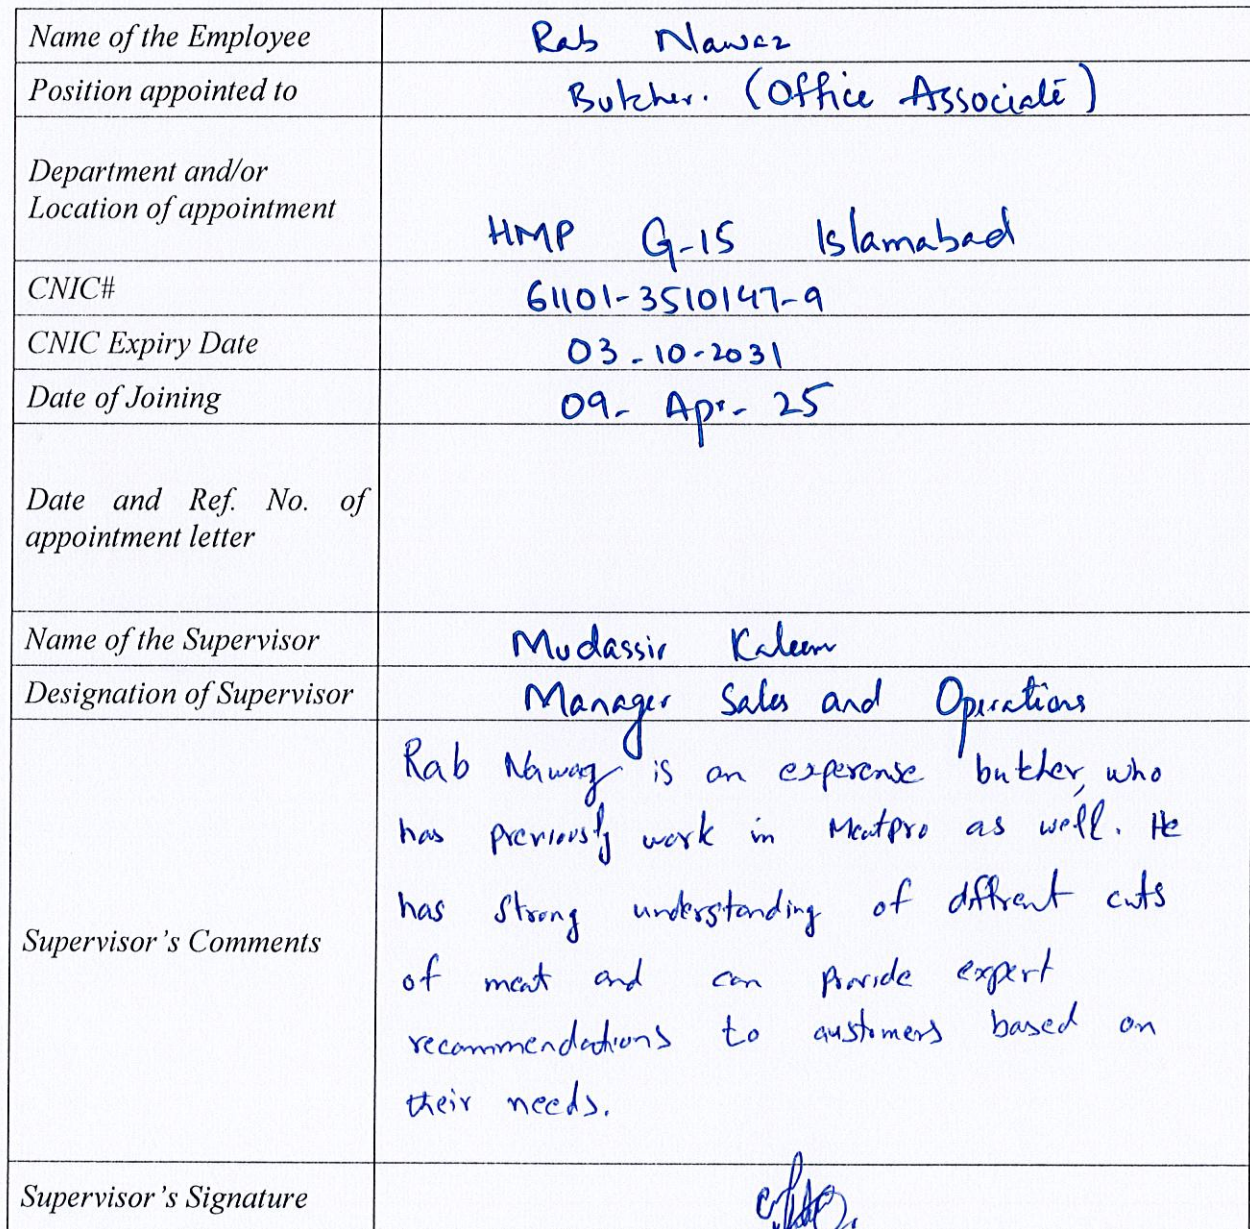 Name of the Employee Rab Nawaz
Position appointed to Butcher. (Office Associate)
Department and/or
Location of appointment HMP G-15 Islamabad
CNIC# 61101-3510147-9
CNIC Expiry Date 03-10-2031
Date of Joining 09- Apr- 25
Date and Ref. No. of
appointment letter
Name of the Supervisor Mudassir Kaleem
Designation of Supervisor Manager Sales and Operations
Supervisor's Comments
Rab Nawaz is an experense butcher, who
has previously work in Meatpro as well. He
has strong understanding of diffrent cuts
of meat and can provide expert
recommendations to customers based on
their needs.
Supervisor's Signature